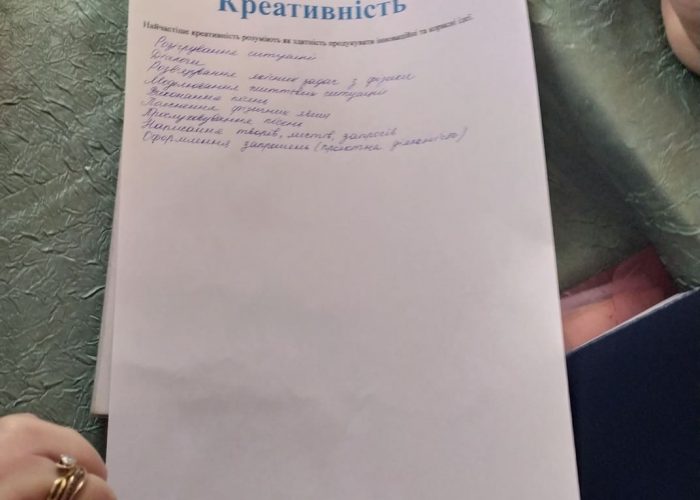 Креативність
Найчастіше креативність розуміють як здатність продукувати інноваційні та корисні ідеї.
Розігрування ситуації
Діалоги
Розв'язування логічних задач з фізики
Моделювання життєвих ситуацій
Виконання пісні
Пояснення фізичних явищ
Прослуховування пісні
Написання творів, листів, запрогів
Оформлення запрошень (проєктна діяльність)